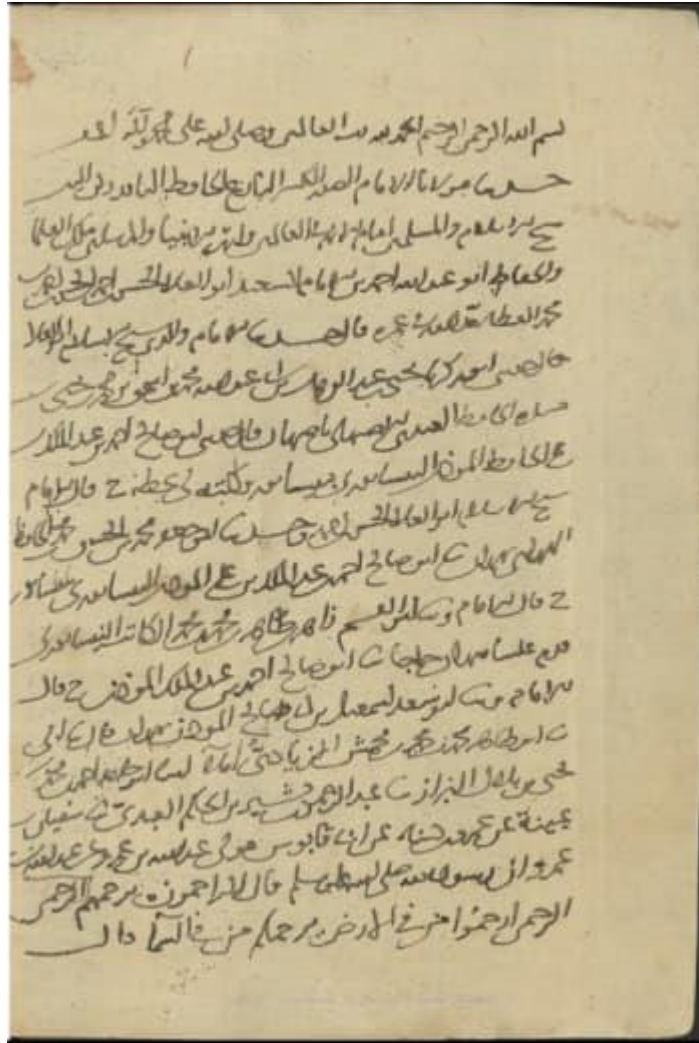 بسم الله الرحمن الرحيم الحمد لله رب العالمين وصلى الله على محمد وآله
حدثنا مولانا الامام الصدر الحافظ
الاسلام والمسلمين العالمين ملك العلما
والحفاظ ابو عبد الله احمد بن الامام السعيد ابو العلا الحسن بن احمد بن الحسن بن احمد بن
محمد العطار قال حدثنا الامام والدي شيخ الاسلام ابو العلا
قال حدثني ابو زكريا يحيى بن عبد الوهاب بن ابي عبد الله محمد بن اسحق بن محمد بن يحيى
الحافظ العبدي الاصبهاني باصبهان قال حدثني ابو صالح احمد بن عبد الملك
بن علي الحافظ المؤذن النيسابوري بنيسابور وكتبته لي بخطه ح قال الامام
شيخ الاسلام ابو العلا الحسن بن احمد وحدثنا ابو جعفر محمد بن الحسن بن محمد الحافظ
الهمداني بهمدان ثنا ابو صالح احمد بن عبد الملك بن علي المؤذن النيسابوري بنيسابور
ح قال الامام وثنا ابو القسم زاهر بن طاهر بن محمد بن محمد الكاتب النيسابوري
قدم علينا همدان حاجا ثنا ابو صالح احمد بن عبد الملك المؤذن ح قال
الامام وثنا ابو سعد اسمعيل بن ابي صالح المؤذن بهمدان ثنا ابي
ثنا ابو طاهر محمد بن محمد بن محمش الزيادي املا ابنا ابو حامد احمد بن محمد بن
يحيى بن بلال البزاز ثنا عبد الرحمن بن بشر بن الحكم العبدي ثنا سفيان بن
عيينة عن عمرو بن دينار عن ابي قابوس مولى عبد الله بن عمرو عن عبد الله بن
عمرو ان رسول الله صلى الله عليه وسلم قال الراحمون يرحمهم الرحمن
الرحمن ارحموا من في الارض يرحمكم من في السما قال